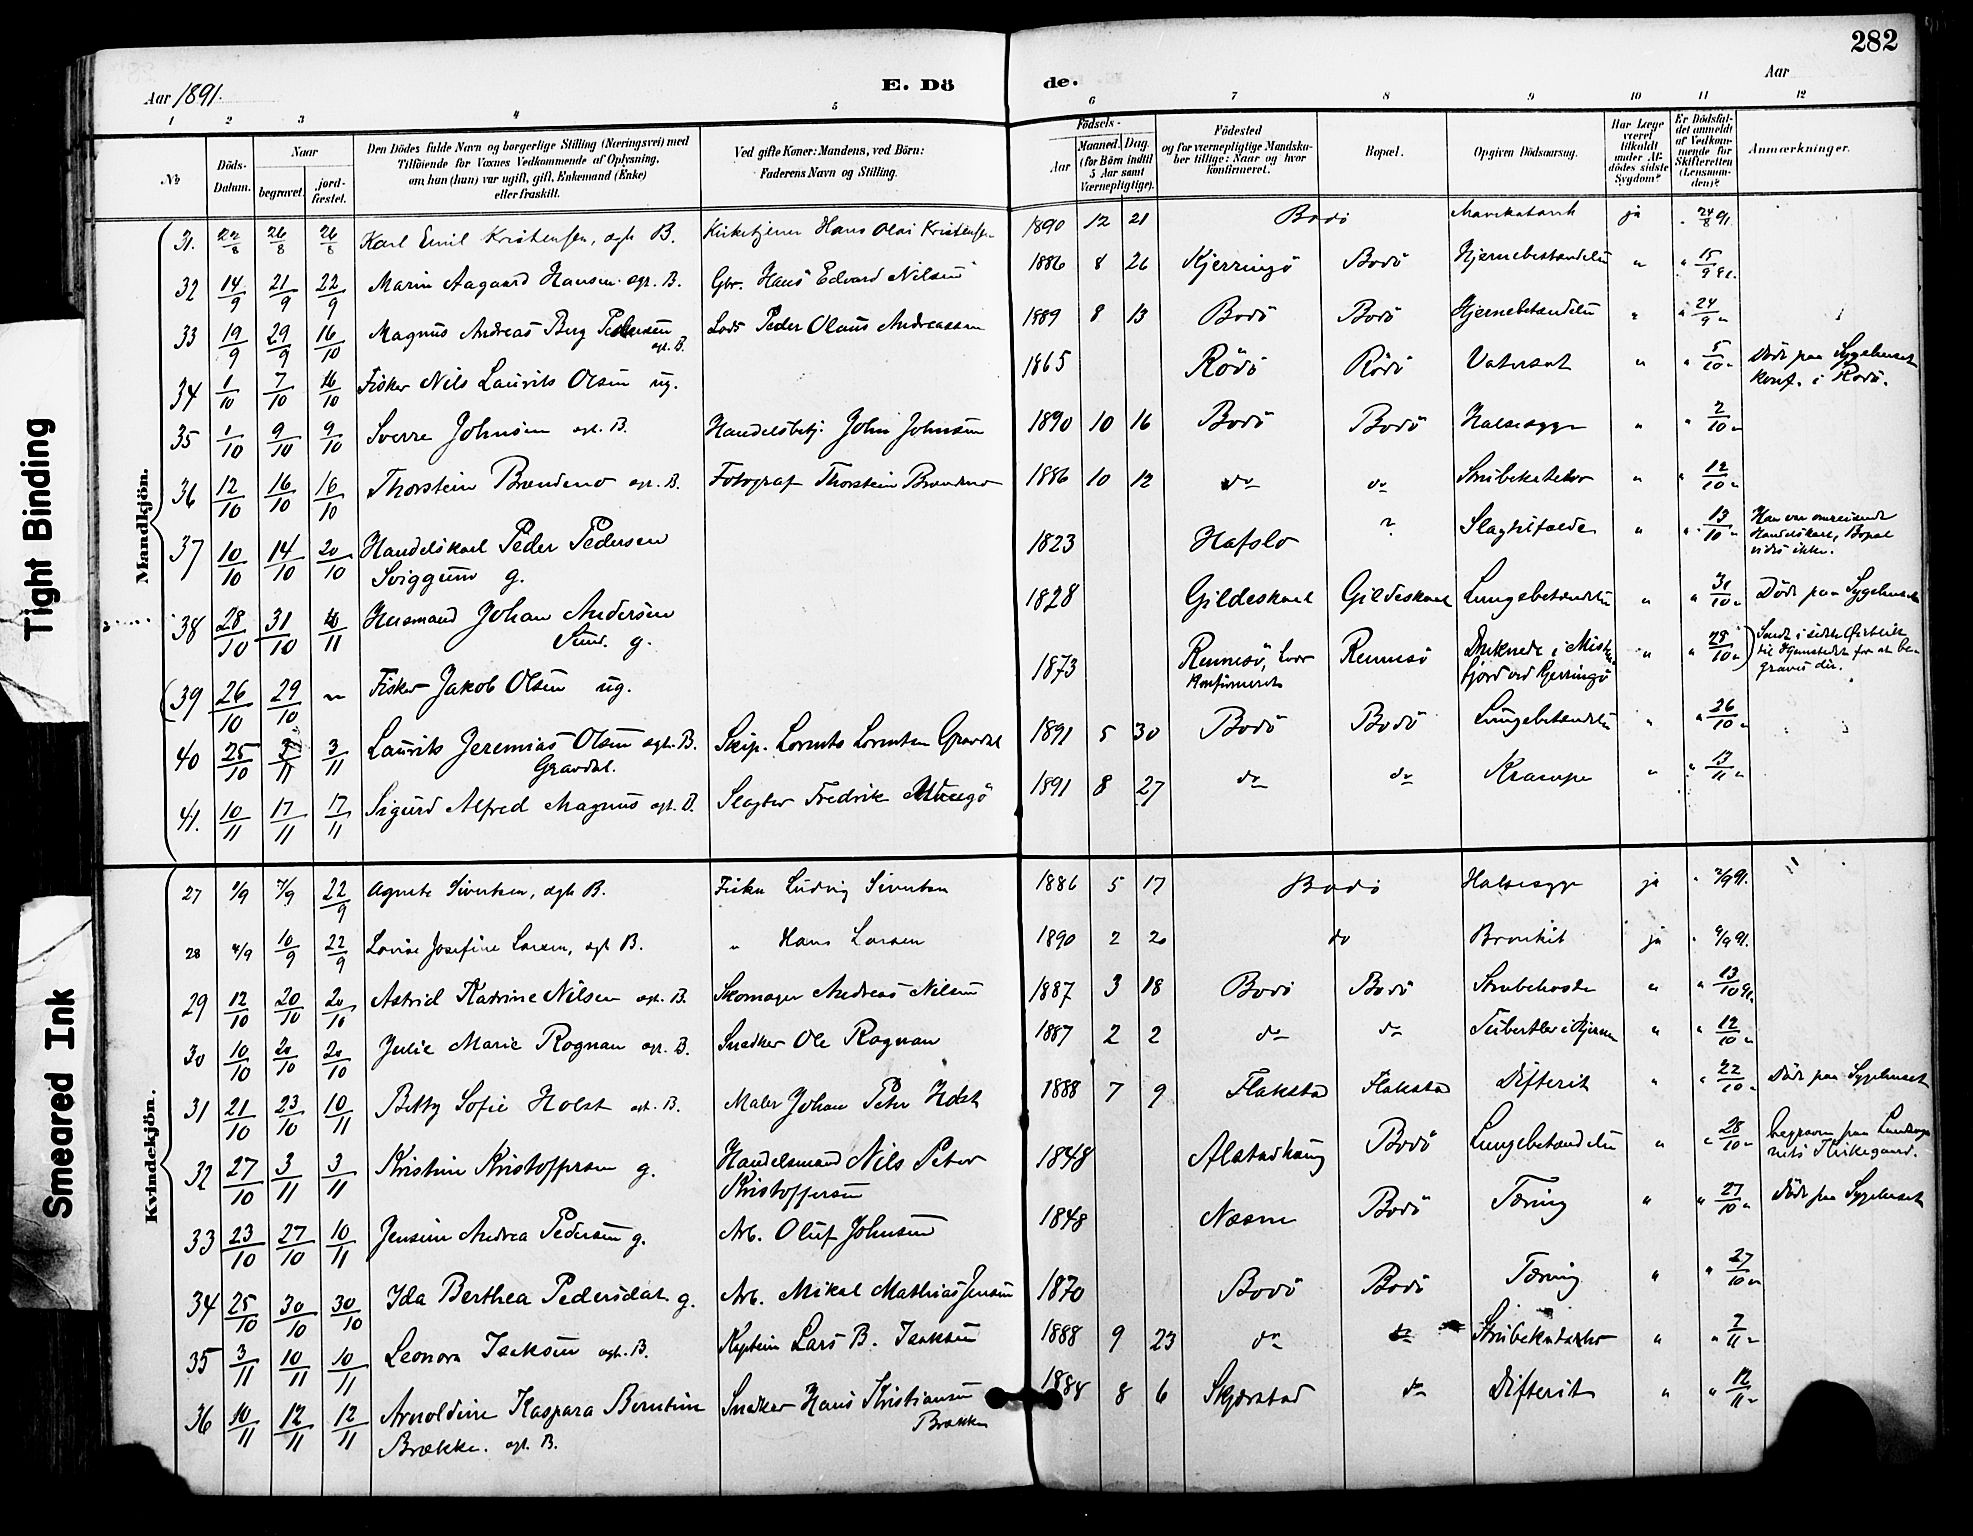 282
Aar 1891.
E. Dö
de.
Aar
1 2 3 4 5 6 7 8 9 10 11 12
№
Döds-Datum.
Naar
begravet.
jord-fæstet.
Den Dödes fulde Navn og borgerlige Stilling (Næringsvei) med
Tilföiende for Voxnes Vedkommende af Oplysning,
om han (hun) var ugift, gift, Enkemand (Enke)
eller fraskilt.
Ved gifte Koner: Mandens, ved Börn:
Faderens Navn og Stilling.
Födsels-
Aar
Maaned. Dag.
(for Börn indtil
5 Aar samt
Værnepligtige).
Födested
og for værnepligtige Mandska-
ber tillige: Naar og hvor
konfirmeret.
Bopæl.
Opgiven Dödsaarsag.
Har Læge
været
tilkaldt
under Af-
dödes sidste
Sygdom?
Er Dödsfal-
det anmeldt
af Vedkom-
mende for
Skifteretten
(Lensman-
den)?
Anmærkninger.
Mandkjön.
31. 22/8 26/8 26/8 Karl Emil Kristensen, ægte B. Kirketjener Hans Olai Kristensen 1890 12 21 Bodö ja " 24/8 91.
32 14/9 21/9 22/9 Marin Aagaard Hansen ægt. B. Gbr. Hans Edvard Nilsen 1886 8 26 Kjerringö Bodö Hjernebetændelse " " 15/9 91.
33 19/9 29/9 16/10 Magnus Andreas Berg Pedersen ægt. B. Lods Peder Olaus Andreassen 1889 8 13 Bodö Bodö Hjernebetændelse " " 24/9 "
34 1/10 7/10 16/10 Fisker Nils Laurits Olsen ug. 1865 Rödö Rödö Vatersot " " 5/10 " Döde paa Sygehuset
Konf. i Rödö.
35 1/10 9/10 9/10 Sverre Johnsen ægt. B. Handelsbetj. John Johnsen 1890 10 16 Bodö Bodö Halssyge " " 2/10 "
36 12/10 16/10 16/10 Thorstein Brændmo ægt. B. Fotograf Thorstein Brændmo 1886 10 12 do do Strubekatarr " " 12/10 "
37 10/10 14/10 20/10 Handelskarl Peder Pedersen
Sviggum g. 1823 Hafslo ? Slagtilfælde " " 13/10 " Han var omreisende
Handelskarl, Bopæl
vides ikke.
38 28/10 31/10 /11 Husmand Johan Andersen
Sund. g. 1828 Gildeskaal Gildeskaal Lungebetændelse " " 31/10 " Döde paa Sygehuset
(39 26/10 29/10 " Fisker Jakob Olsen ug. 1873 Rennesö, hvor
konfirmeret Rennesö Druknede i Mist-
fjord ved Kjerringö " " 28/10 ") Sendt i sidste Öieblik
til Hjemstedet for at be-
graves der.
40 25/10 3/11 3/11 Laurits Jeremias Olsen ægte B.
Gravdal. Skip. Lorents Lorentsen Gravdal 1891 5 30 Bodö Bodö Lungebetændelse " " 26/10 "
41. 10/11 17/11 17/11 Sigurd Alfred Magnus ægt. B. Slagter Fredrik 1891 8 27 do do Krampe " " 13/11 "
Kvindekjön.
27 1/9 7/9 22/9 Agnete Sivertsen, ægte B. Fisker Ludvig Sivertsen 1886 5 17 Bodö Halssyge ja " 2/9 91.
28 4/9 10/9 22/9 Lovise Josefine Larsen, ægt B. " Hans Larsen 1890 2 20 do Bronkit ja " 9/9 91.
29 12/10 20/10 20/10 Astrid Katrine Nilsen ægt. B. Skomager Andreas Nilsen 1887 3 18 Bodö Bodö Strubehoste " " 13/10 91.
30 10/10 20/10 20/10 Julie Marie Rognan ægt. B. Snedker Ole Rognan 1887 2 2 do do Tuberkler i Hjernen " " 12/10 "
31 21/10 23/10 10/11 Betty Sofie Holst ægt. B. Maler Johan Peter Holst 1888 7 9 Flakstad Flakstad Difterit " " 22/10 " Döde paa Sygehuset
32 27/10 3/11 3/11 Kristine Kristoffersen g. Handelsmand Nils Peter
Kristoffersen 1848 Alstadhaug Bodö Lungebetændelse " " 28/10 " begraven paa Landsog-
nets Kirkegaard.
33 23/10 27/10 10/11 Jensine Andrea Pedersen g. Arb. Oluf Johnsen 1848 Næsne Bodö Tæring " " 27/10 " Döde paa Sygehuset
34 25/10 30/10 30/10 Ida Berthea Pedersdat. g. Arb. Mikal Mathias Jensen 1870 Bodö Bodö Tæring " " 27/10 "
35 3/11 10/11 10/11 Leonora Isaksen ægt. B. Kaptein Lars B. Isaksen 1888 9 23 do do Strubekatarr " " 7/11 "
36 10/11 12/11 12/11 Arnoldine Kaspara Berntine
Brække. ægt. B. Snedker Hans Kristiansen
Brække 1884 8 6 Skjerstad do Difterit " " 12/11 "
Tight Binding
Smeared Ink